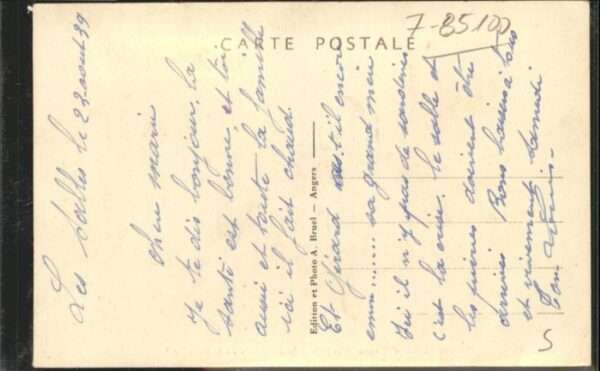 7-85100
CARTE POSTALE
Les Sables le 22 août 39
Cher mari
Je te dis bonjour, la
santé est bonne, et toi
aussi et toute la famille
ici il fait chaud.
Edition et Photo A. Bruel — Angers
Et Gérard est t'il encore
sa grand mère
Ici il n'y pas de sardines
c'est la crise. le sable et
les pierres doivent être
Bons baisers à tous
et vivement samedi
Ton
S